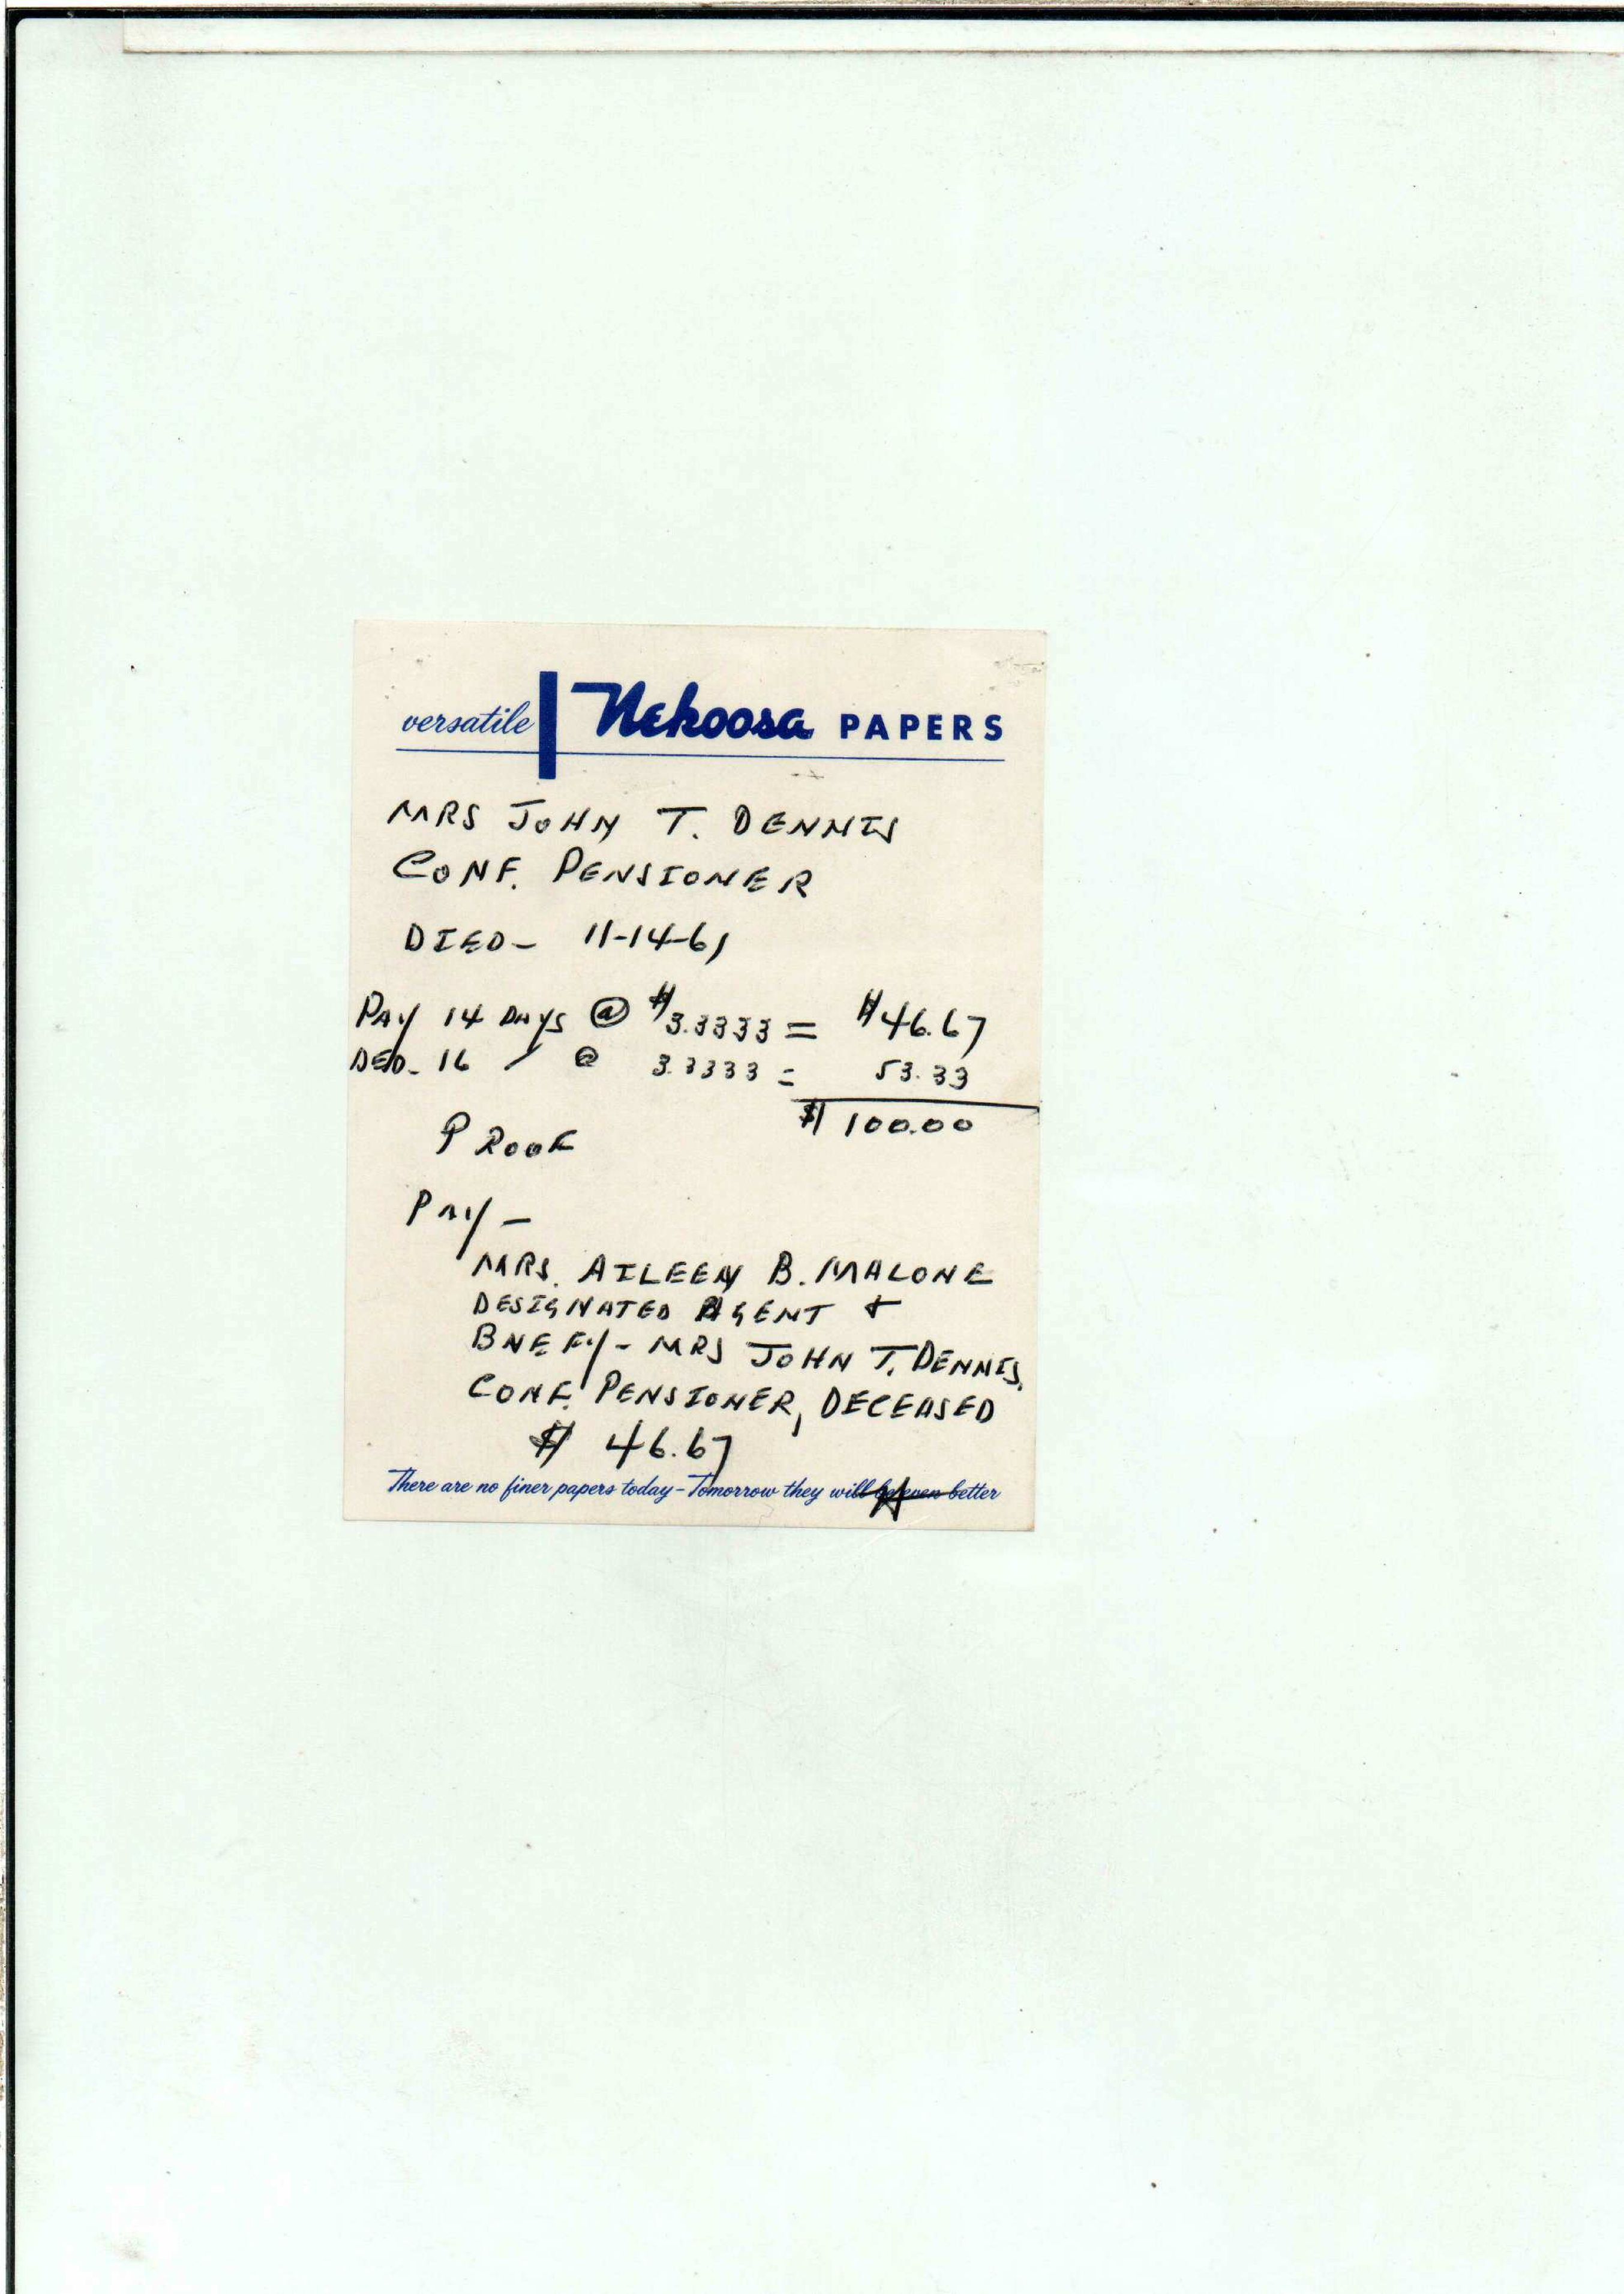 versatile Nekoosa PAPERS
MRS JOHN T. DENNIS
CONF. PENSIONER
DIED- 11-14-61
PAY 14 DAYS @ $3.3333 = $46.67
DED. 16 〃 @ 3.3333 = 53.33
PROOF $100.00
PAY-
MRS. AILEEN B. MALONE
DESIGNATED AGENT +
BNEFY- MRS JOHN T. DENNIS,
CONF. PENSIONER, DECEASED
$ 46.67
There are no finer papers today-Tomorrow they will be even better